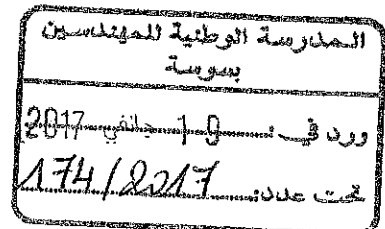 المدرسة الوطنية للمهندسين
بسوسة
ورد في: 10 جانفي 2017
تحت عدد: 174/2017